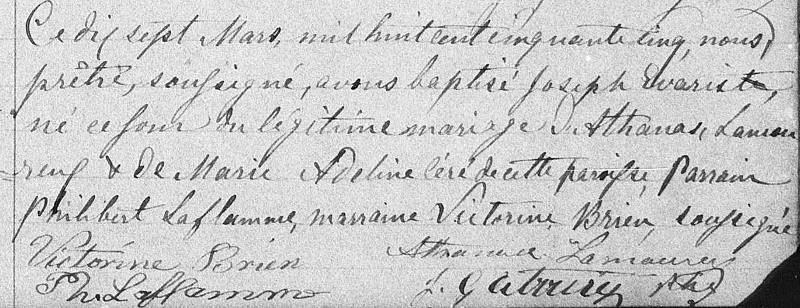 Ce dix sept Mars, mil huit cent cinquante cinq, nous,
prêtre, soussigné, avons baptisé Joseph Evariste,
né ce jour du légitime mariage d'Athanas, Lamou
=reux & de Marie Adeline Céré de cette paroisse, Parrain
Philibert Laflamme, marraine Victorine Brien, soussignés
Victorine Brien Athanase Lamoureux
Ph. Laflamme J. Gaboury Ptre